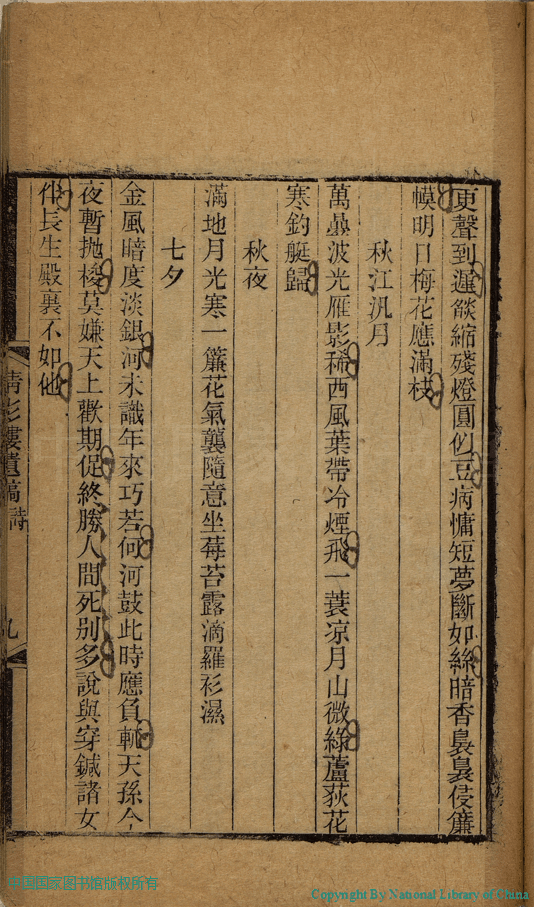 更聲到遲燄縮殘燈圓似豆病慵短夢斷如絲暗香裊裊侵簾
幙明日梅花應滿枝
秋江汎月
萬疊波光雁影稀西風葉帶冷煙飛一蓑凉月山微綠蘆荻花
寒釣艇歸
秋夜
滿地月光寒一簾花氣襲隨意坐莓苔露滴羅衫濕
七夕
金風暗度淡銀河未識年來巧若何河鼓此時應負軛天孫今
夜暫抛梭莫嫌天上歡期促終勝人間死别多說與穿鍼諸女
伴長生殿裏不如他
清影樓遺稿 詩
九
中国国家图书馆版权所有
Copyright By National Library of China